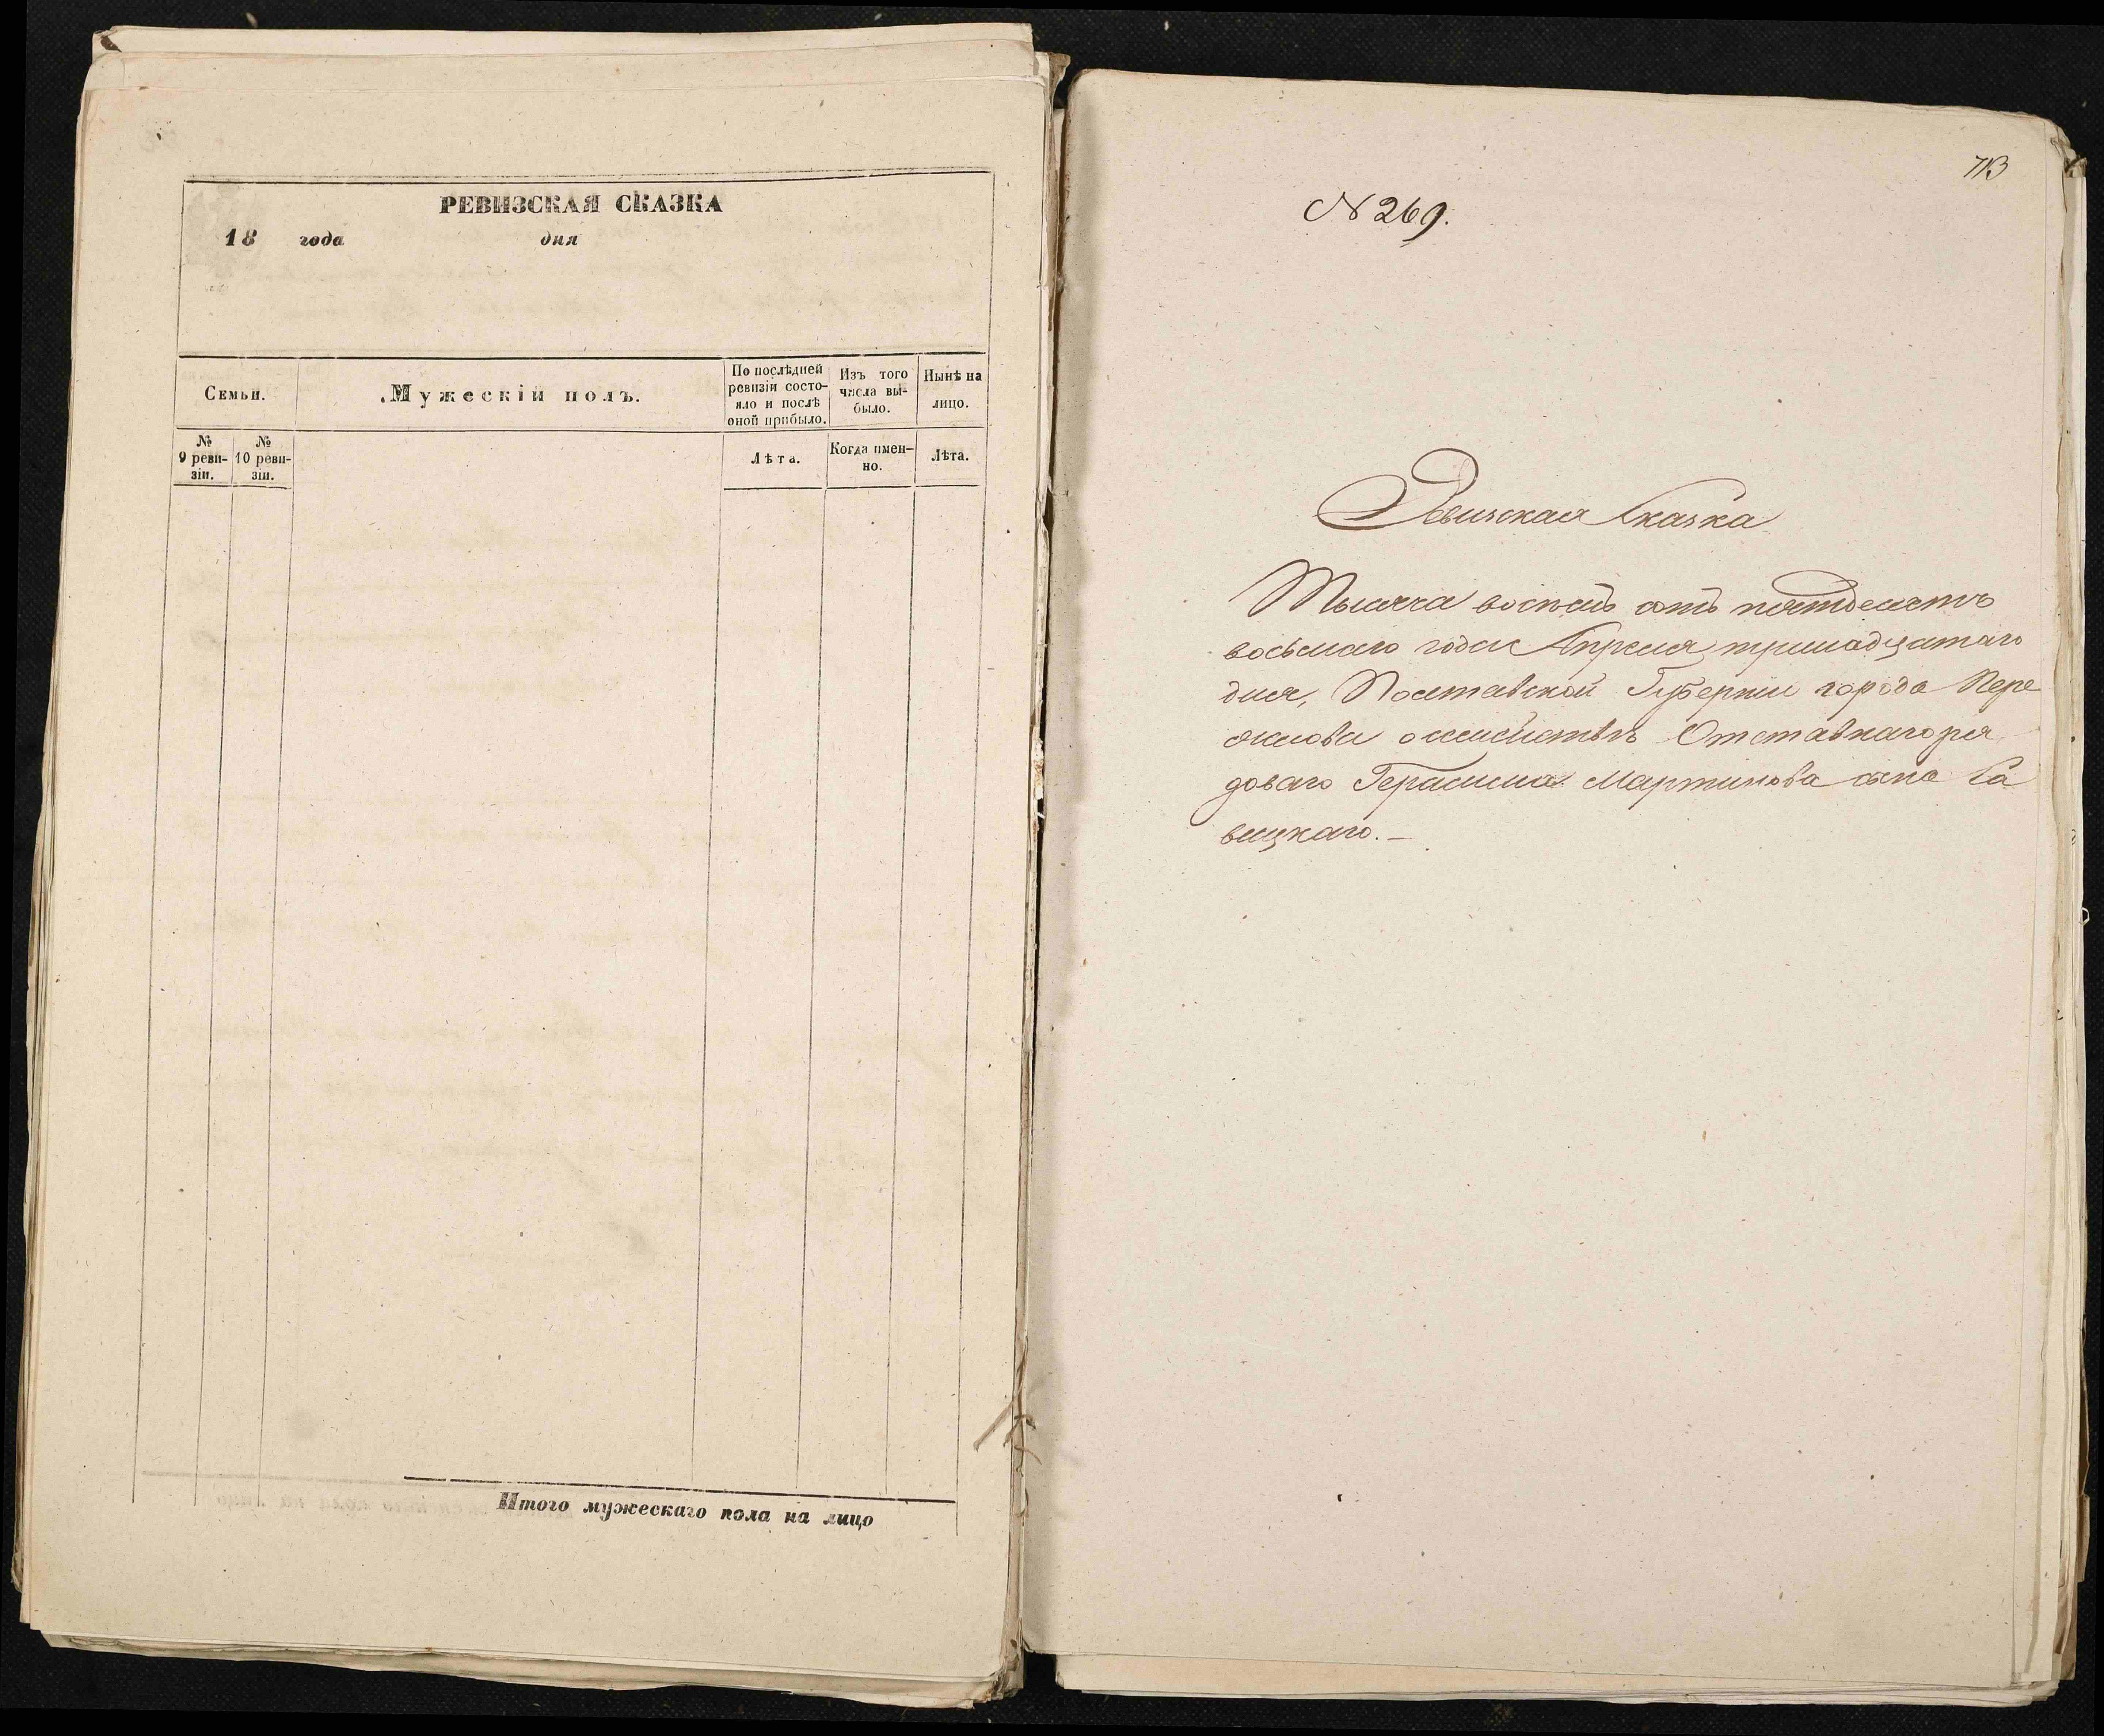 РЕВИЗСКАЯ СКАЗКА
18 года дня
Семьи.
Мужескій полъ.
По послѣдней
ревизіи состо-
яло и послѣ
оной прибыло.
Изъ того
числа вы-
было.
Нынѣ на
лицо.
№
9 реви-
зіи.
№
10 реви-
зіи.
Лѣта.
Когда имен-
но.
Лѣта.
Итого мужескаго пола на лицо
713
N 269.
Ревизская Сказка
Тысяча восемь сотъ пятдесятъ
восьмаго года Апреля тринадцатаго
дня, Полтавской Губерніи города Пере
яслова о семействѣ Отставнаго ря
доваго Герасима Мартинова сына Са
вицкаго.—